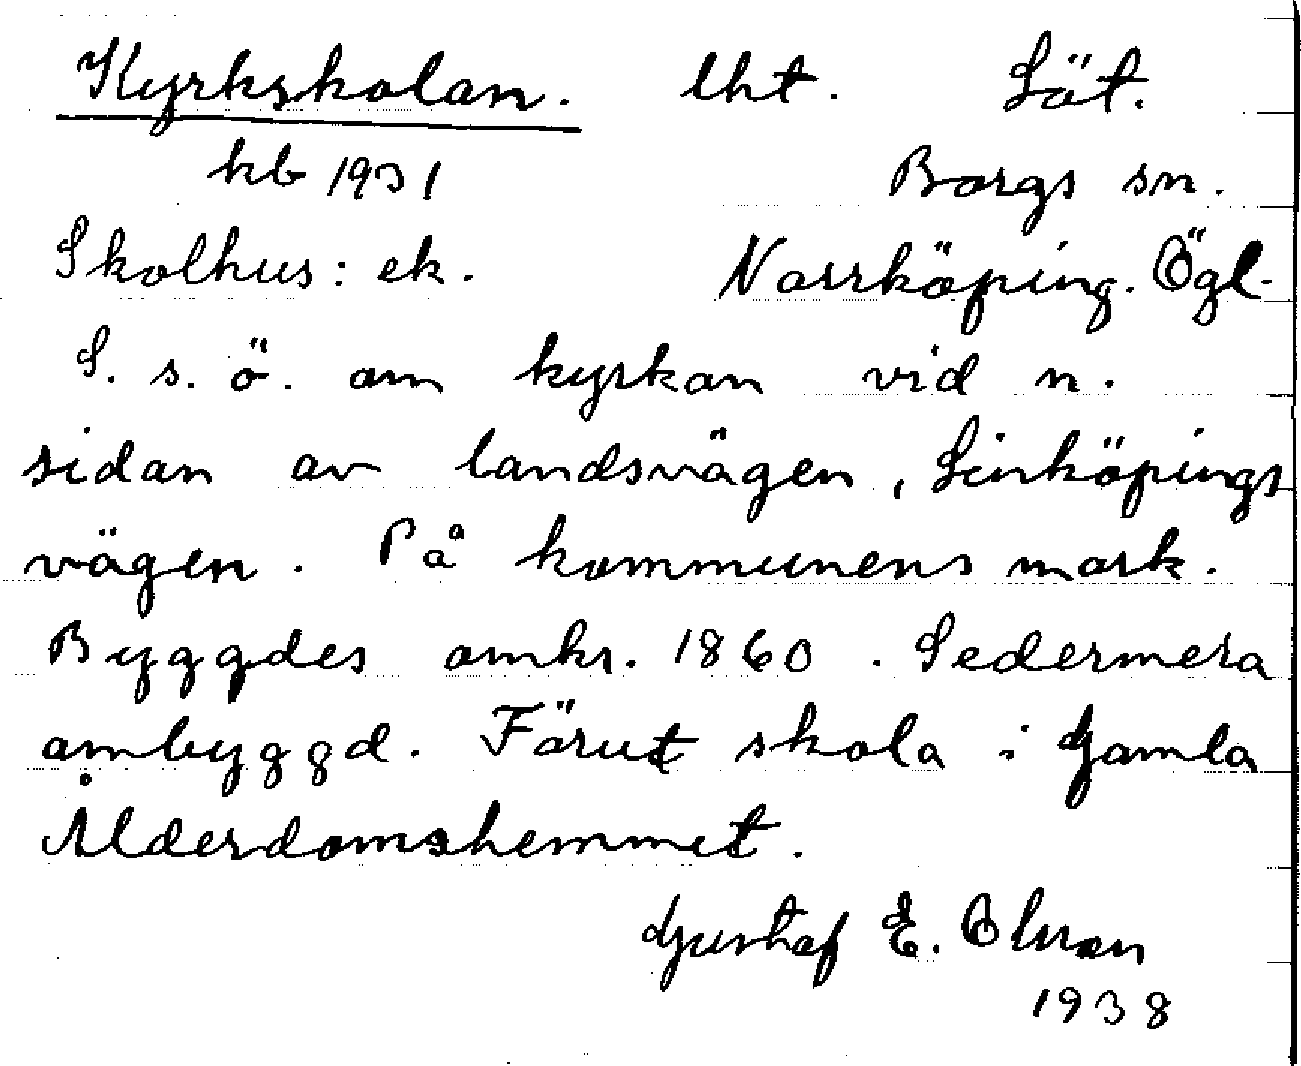 Kyrkskolan. lht. Löt.
kb 1931 Borgs sn.
Skolhus: ek. Norrköping. Ögl.
S. s. ö. om kyrkan vid n.
sidan av landsvägen, Linköpings
vägen. På kommunens mark.
Byggdes omkr. 1860. Sedermera
ombyggd. Förut skola i Gamla
Ålderdomshemmet.
Gustaf E. Olson
1938